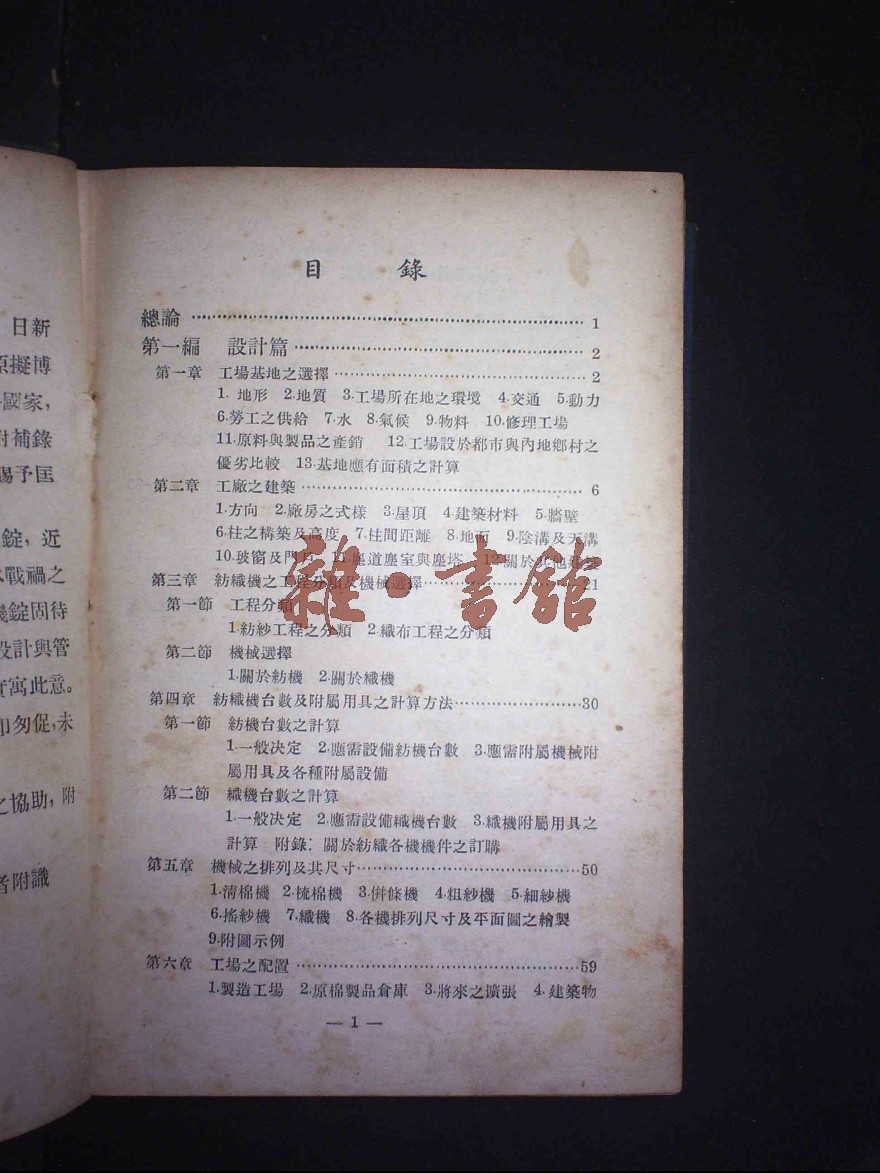 日新
原擬博
國家,
附補錄
賜予匡
錠, 近
戰禍之
錠固待
設計與管
寓此意。
印匆促,未
之協助, 附
者附識
目 錄
總論 1
第一編 設計篇 2
第一章 工場基地之選擇 2
1. 地形 2.地質 3.工場所在地之環境 4.交通 5.動力
6.勞工之供給 7.水 8.氣候 9.物料 10.修理工場
11.原料與製品之產銷 12.工場設於都市與內地鄉村之
優劣比較 13.基地應有面積之計算
第二章 工廠之建築 6
1.方向 2.廠房之式樣 3.屋頂 4.建築材料 5.牆壁
6.柱之構築及高度 7.柱間距離 8.地面 9.陰溝及天溝
10.玻窗及門戶 11.塵道塵室與塵塔 12.關於其他建築
第三章 紡織機之工程分類及機械選擇 21
第一節 工程分類
1.紡紗工程之分類 2.織布工程之分類
第二節 機械選擇
1.關於紡機 2.關於織機
第四章 紡織機台數及附屬用具之計算方法 30
第一節 紡機台數之計算
1.一般決定 2.應需設備紡機台數 3.應需附屬機械附
屬用具及各種附屬設備
第二節 織機台數之計算
1.一般決定 2.應需設備織機台數 3.織機附屬用具之
計算 附錄: 關於紡織各機機件之訂購
第五章 機械之排列及其尺寸 50
1.清棉機 2.梳棉機 3.併條機 4.粗紗機 5.細紗機
6.搖紗機 7.織機 8.各機排列尺寸及平面圖之繪製
9.附圖示例
第六章 工場之配置 59
1.製造工場 2.原棉製品倉庫 3.將來之擴張 4.建築物
— 1 —
雜·書館